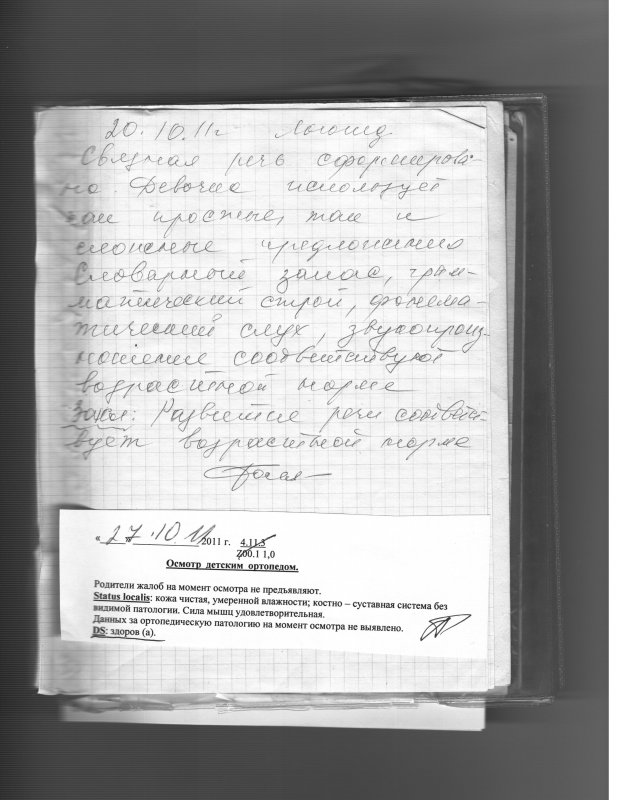 20.10.11г Логопед
Связная речь сформирова-
на. Девочка использует
как простые, так и
сложные предложения
Словарный запас, грам-
матический строй, фонема-
тический слух, звукопроиз-
ношение соответствуют
возрастной норме
Закл: Развитие речи соответст-
вует возрастной норме
« 27 » 10. 11 2011 г. 4.11.3
Z00.1 1,0
Осмотр детским ортопедом.
Родители жалоб на момент осмотра не предъявляют.
Status localis: кожа чистая, умеренной влажности; костно – суставная система без
видимой патологии. Сила мышц удовлетворительная.
Данных за ортопедическую патологию на момент осмотра не выявлено.
DS: здоров (а).